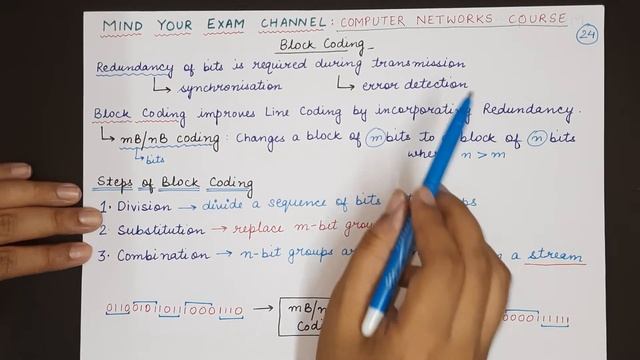 MIND YOUR EXAM CHANNEL: COMPUTER NETWORKS COURSE
24
Block Coding
Redundancy of bits is required during transmission
synchronisation error detection
Block Coding improves Line Coding by incorporating Redundancy.
mB/nB coding: Changes a block of m bits to block of n bits
bits
n > m
Steps of Block Coding
1. Division → divide a sequence of bits
2. Substitution → replace m-bit
3. Combination → n-bit groups a stream
0110010111011100011110